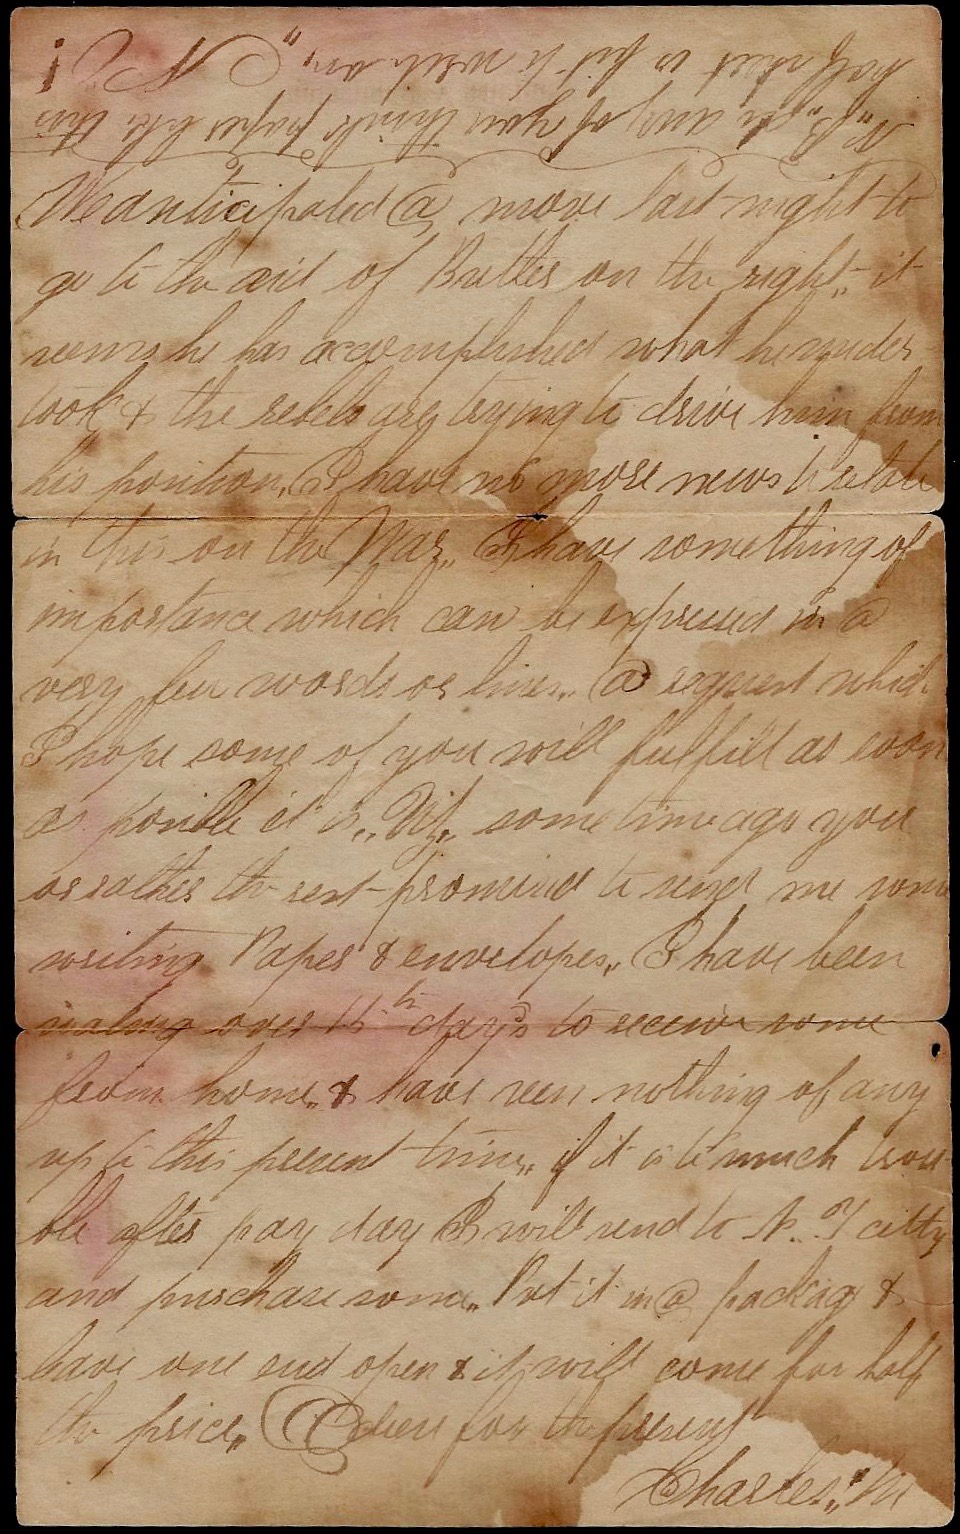 We anticipated a move last night to
go to the aid of Butler on the right,, it
seems he has accomplished what he under
took & the rebels are trying to drive him from
his position,, I have no more news to relate
in this on the War,, I have something of
importance which can be expressed in a
very few words or lines,, a request which
I hope some of you will fulfill as soon
as posible it is,, Viz,, some time ago you
or rather the rest promised to send me some
writing Paper & envelopes,, I have been
over 15th days to receive some
from home,, & have seen nothing of any
up to this present time,, if it is to much trou
ble after pay day I will send to N. Y citty
and purchase some,, Put it in a package &
leave one end open & it will come for half
the price,, for the present
Charles,, M
N,,B,, If any of you think paper like this
half sheet is fit to write on,,